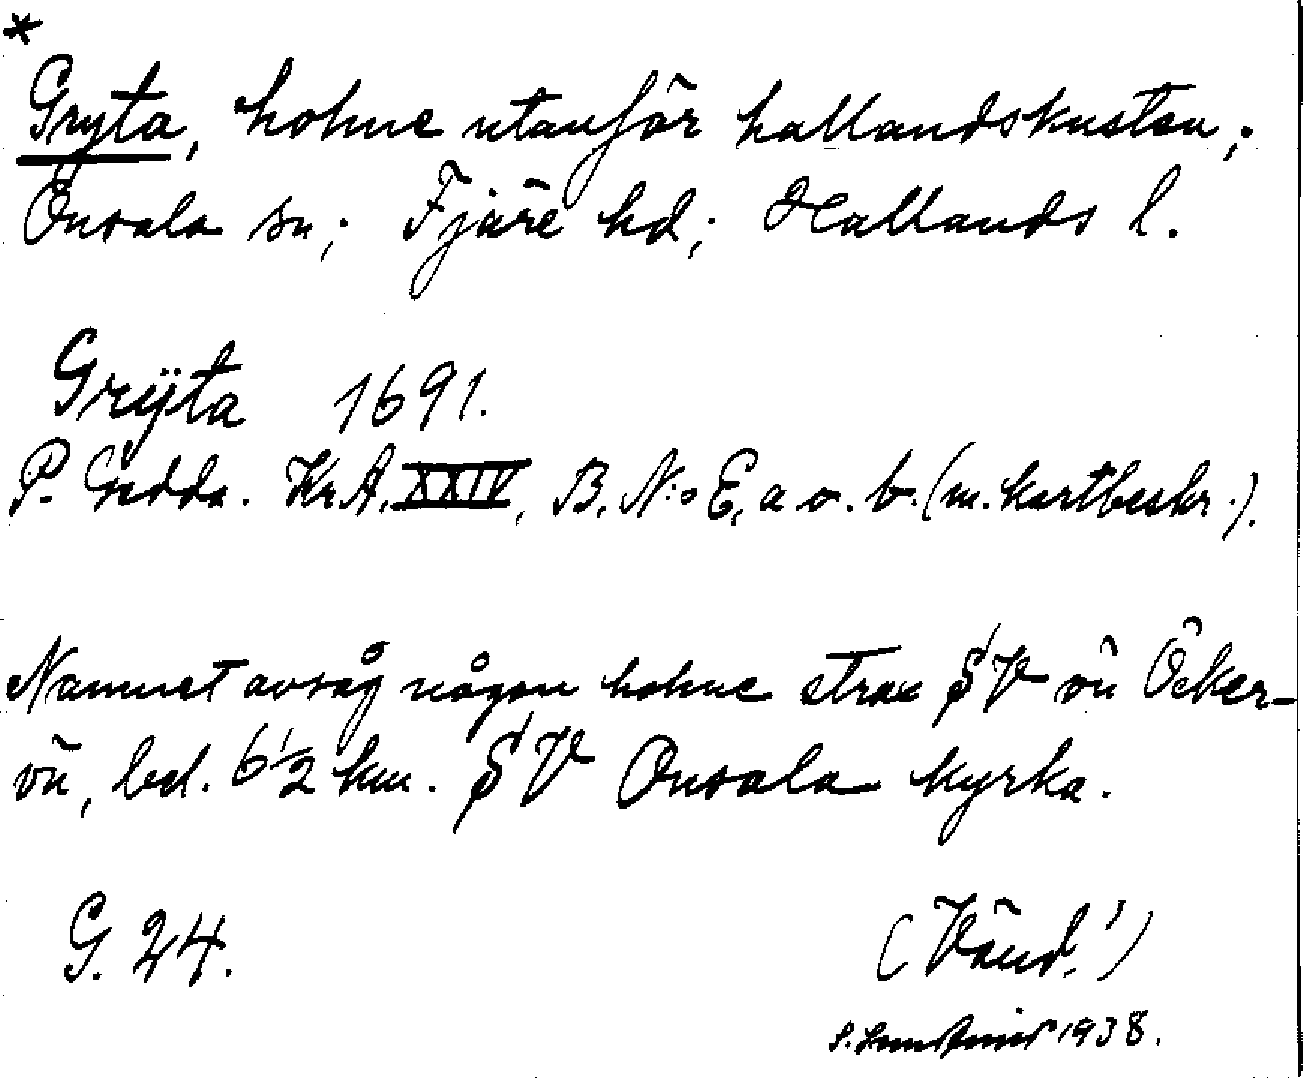 *
Gryta, holme utanför hallandskusten;
Onsala sn; Fjäre hd; Hallands l.
Grÿta 1691.
P. Gedda. Kr.A. XXIV, B. N:o E, a o. b. (m. kartbeskr.).
Namnet avsåg någon holme strax SV om Öcker-
ön, bel. 6 1/2 km. SV Onsala kyrka.
G. 24.
(Vänd!)
1938.